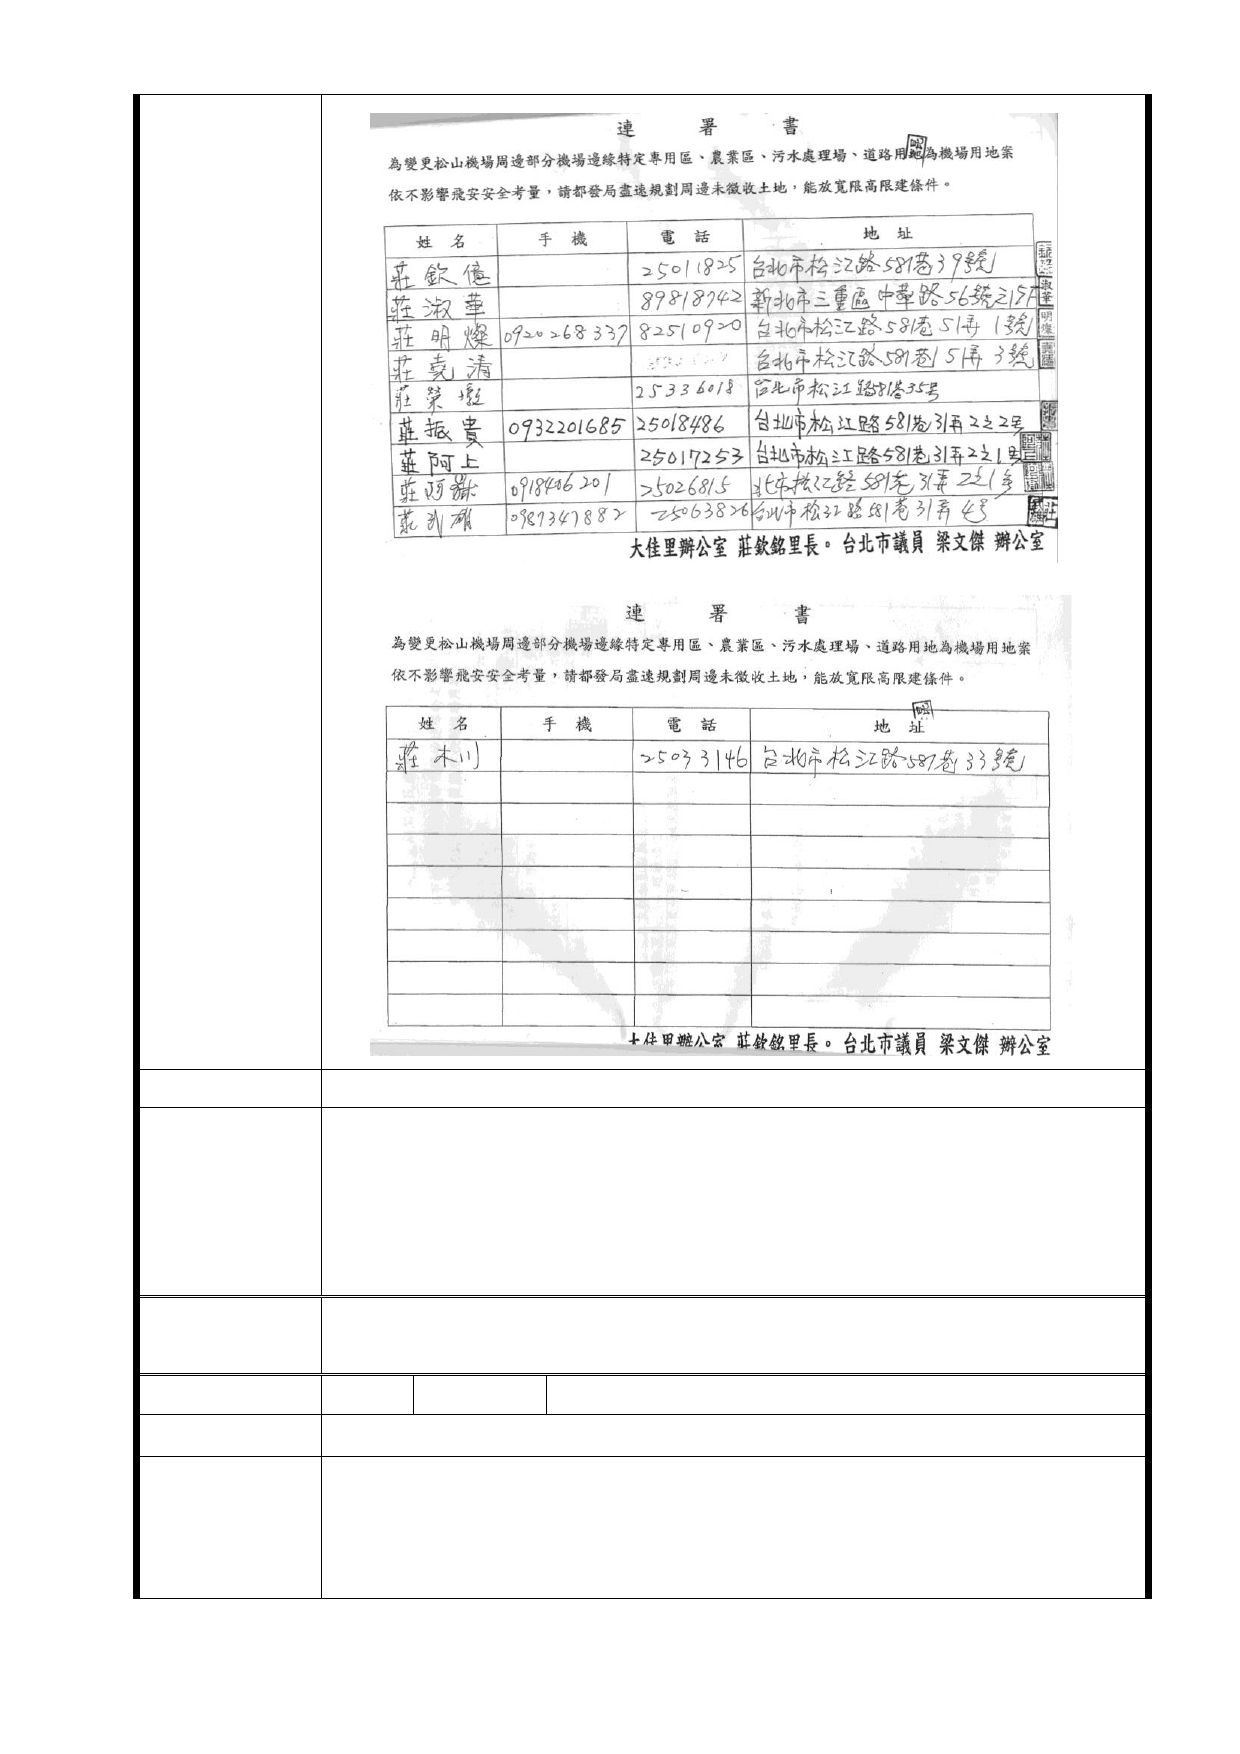 連 署 書
為變更松山機場周邊部分機場邊緣特定專用區、農業區、污水處理場、道路用地為機場用地案
依不影響飛安安全考量，請都發局盡速規劃周邊未徵收土地，能放寬限高限建條件。
姓 名 手 機 電 話 地 址
莊欽億 25011825 台北市松江路581巷39號
莊淑華 89818742 新北市三重區中華路56號之15F
莊明燦 0920268337 82510920 台北市松江路581巷51弄1號
莊堯清 台北市松江路581巷51弄3號
莊榮 25336018 台北市松江路581巷35号
莊振貴 0932201685 25018486 台北市松江路581巷31弄2之2号
莊阿上 25017253 台北市松江路581巷31弄2之1号
莊阿 0918406201 25026815 北市松江路581巷31弄2之1号
莊武雄 0987347882 25063826 台北市松江路581巷31弄4号
大佳里辦公室 莊欽銘里長。台北市議員 梁文傑 辦公室
連 署 書
為變更松山機場周邊部分機場邊緣特定專用區、農業區、污水處理場、道路用地為機場用地案
依不影響飛安安全考量，請都發局盡速規劃周邊未徵收土地，能放寬限高限建條件。
姓 名 手 機 電 話 地 址
莊木川 25033146 台北市松江路581巷33號
大佳里辦公室 莊欽銘里長。台北市議員 梁文傑 辦公室